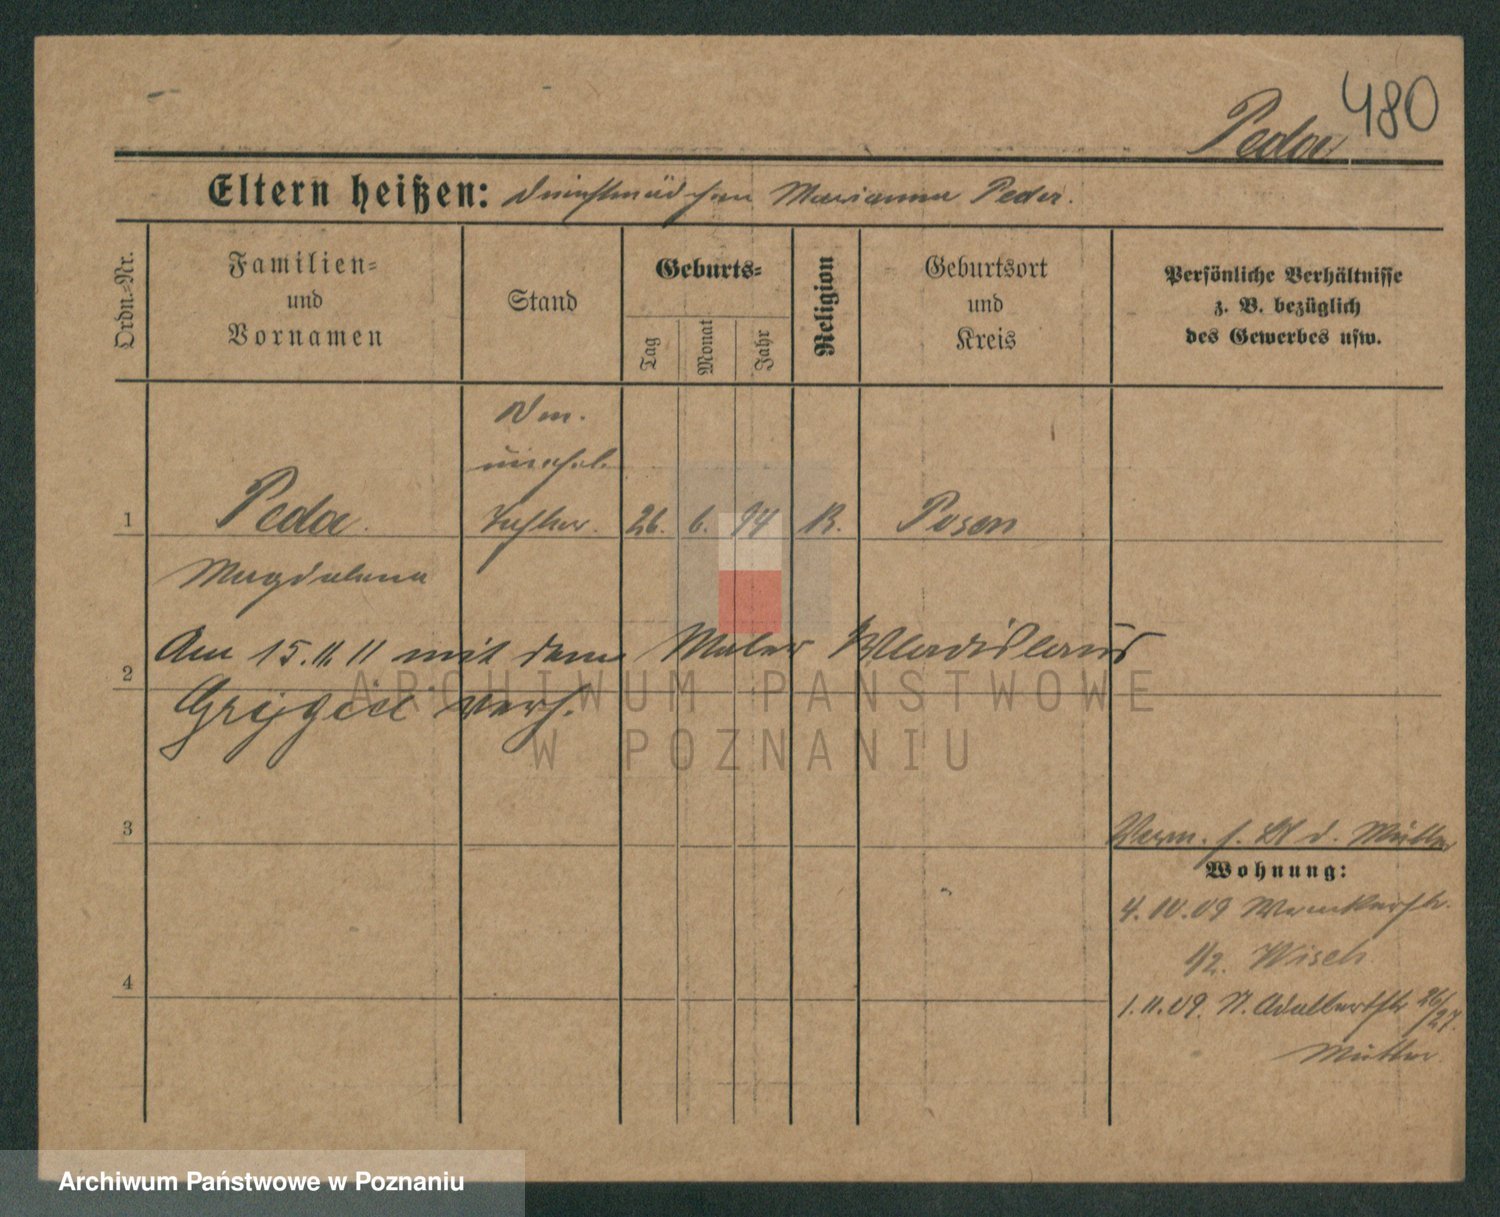 480
Peda
Eltern heißen: Dienstmädchen Marianna Peda.
Ordn.-Nr.
Familien-
und
Vornamen
Stand
Geburts-
Tag
Monat
Jahr
Religion
Geburtsort
und
Kreis
Persönliche Verhältnisse
z. B. bezüglich
des Gewerbes usw.
unehel.
1 Peda. Tochter. 26. 6. 94 K. Posen
Magdalena
Am 15.11.11 mit dem Maler Wladislaus
2
verh.
3
Verm. s. Bl d. Mutter
Wohnung:
4.10.09
4
1/2. Wisch
1.11.09. St. Adalbertstr 26/27.
Mutter
ARCHIWUM PAŃSTWOWE
W POZNANIU
Archiwum Państwowe w Poznaniu